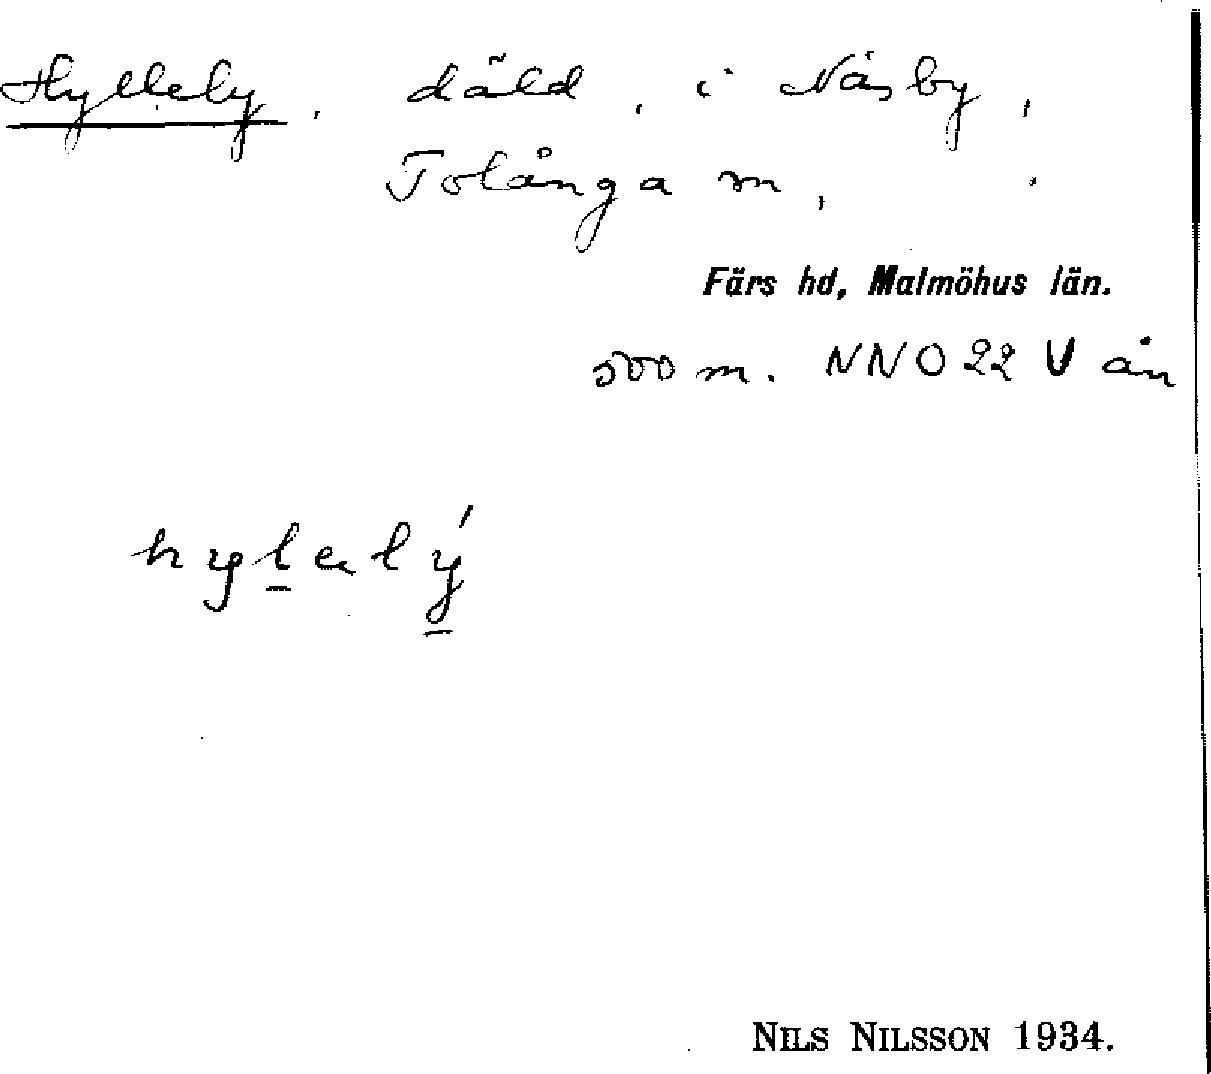 Hylleby, däld, i Näsby,
Tolånga sn,
Färs hd, Malmöhus län.
500 m. NNO 22 V ån
hylalý
NILS NILSSON 1934.